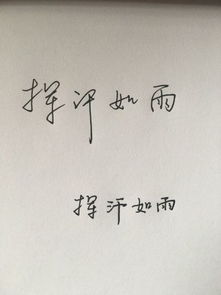 挥汗如雨
挥汗如雨